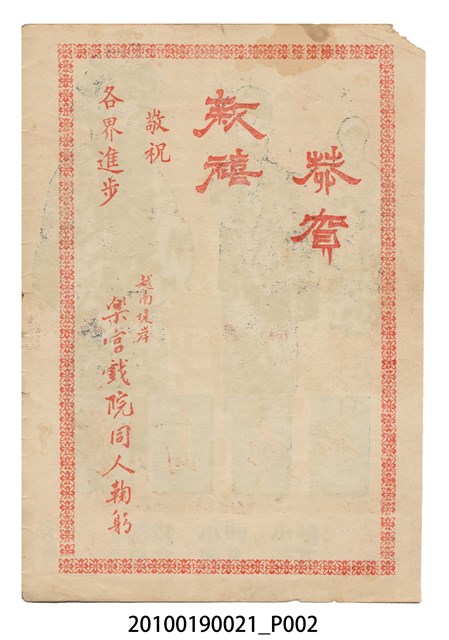 恭賀
新禧
敬祝
各界進步
越南堤岸
樂宮戲院同人鞠躬
20100190021_P002